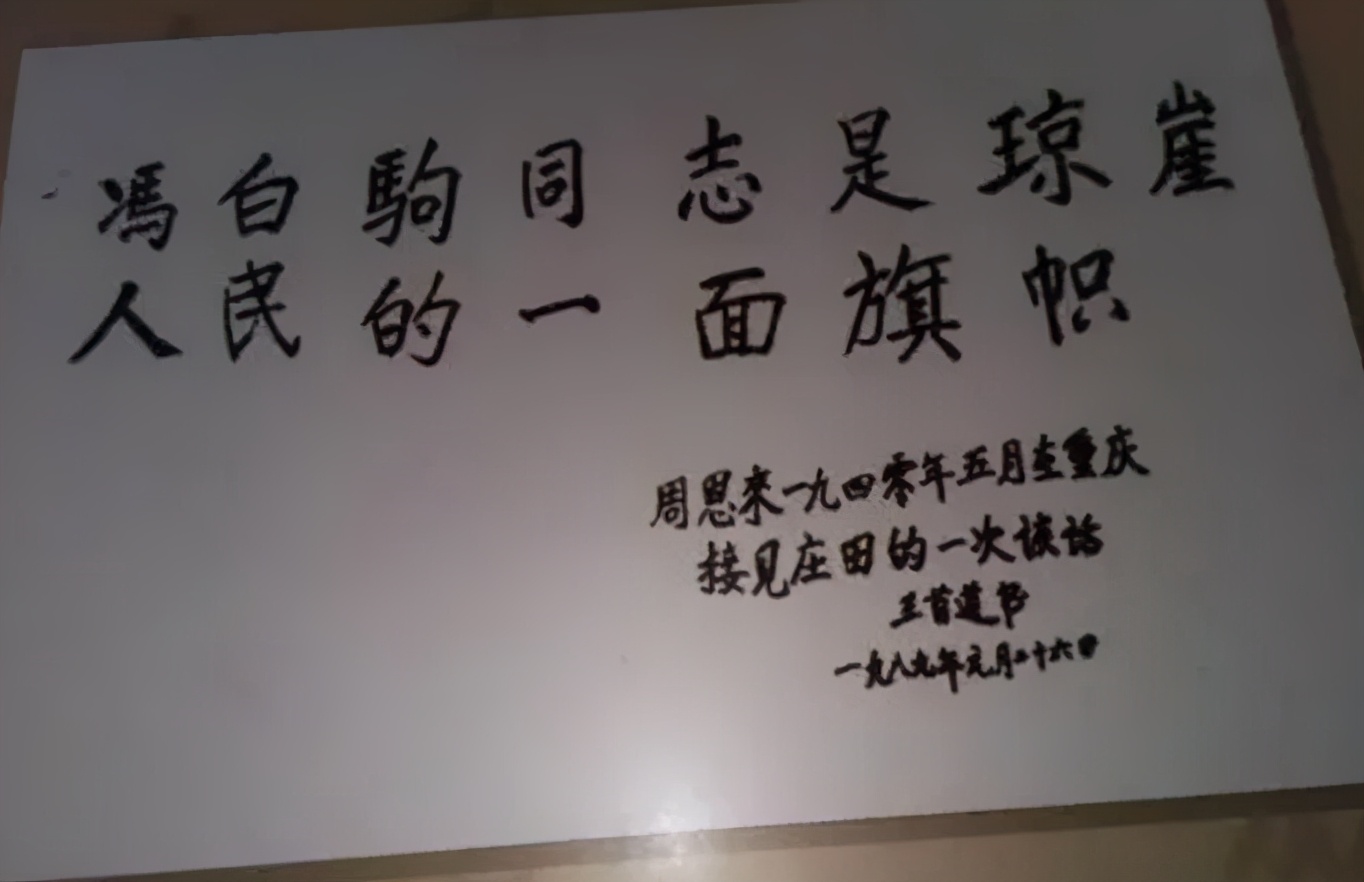 馮白駒同志是琼崖
人民的一面旗帜
周恩來一九四零年五月在重庆
接见庄田的一次谈话
王首道书
一九八九年元月二十六日